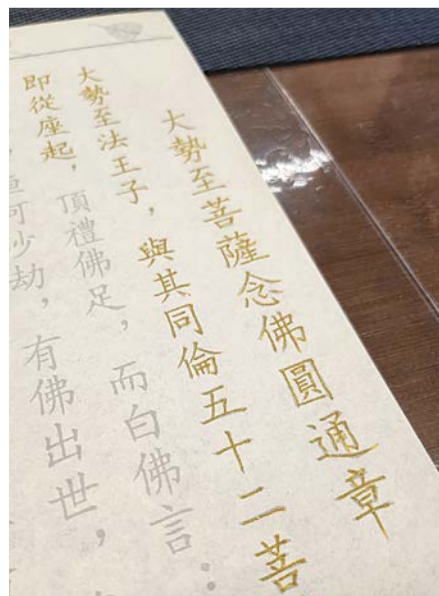 大勢至菩薩念佛圓通章
大勢至法王子，與其同倫五十二菩
即從座起，頂禮佛足，而白佛言：
劫，有佛出世，